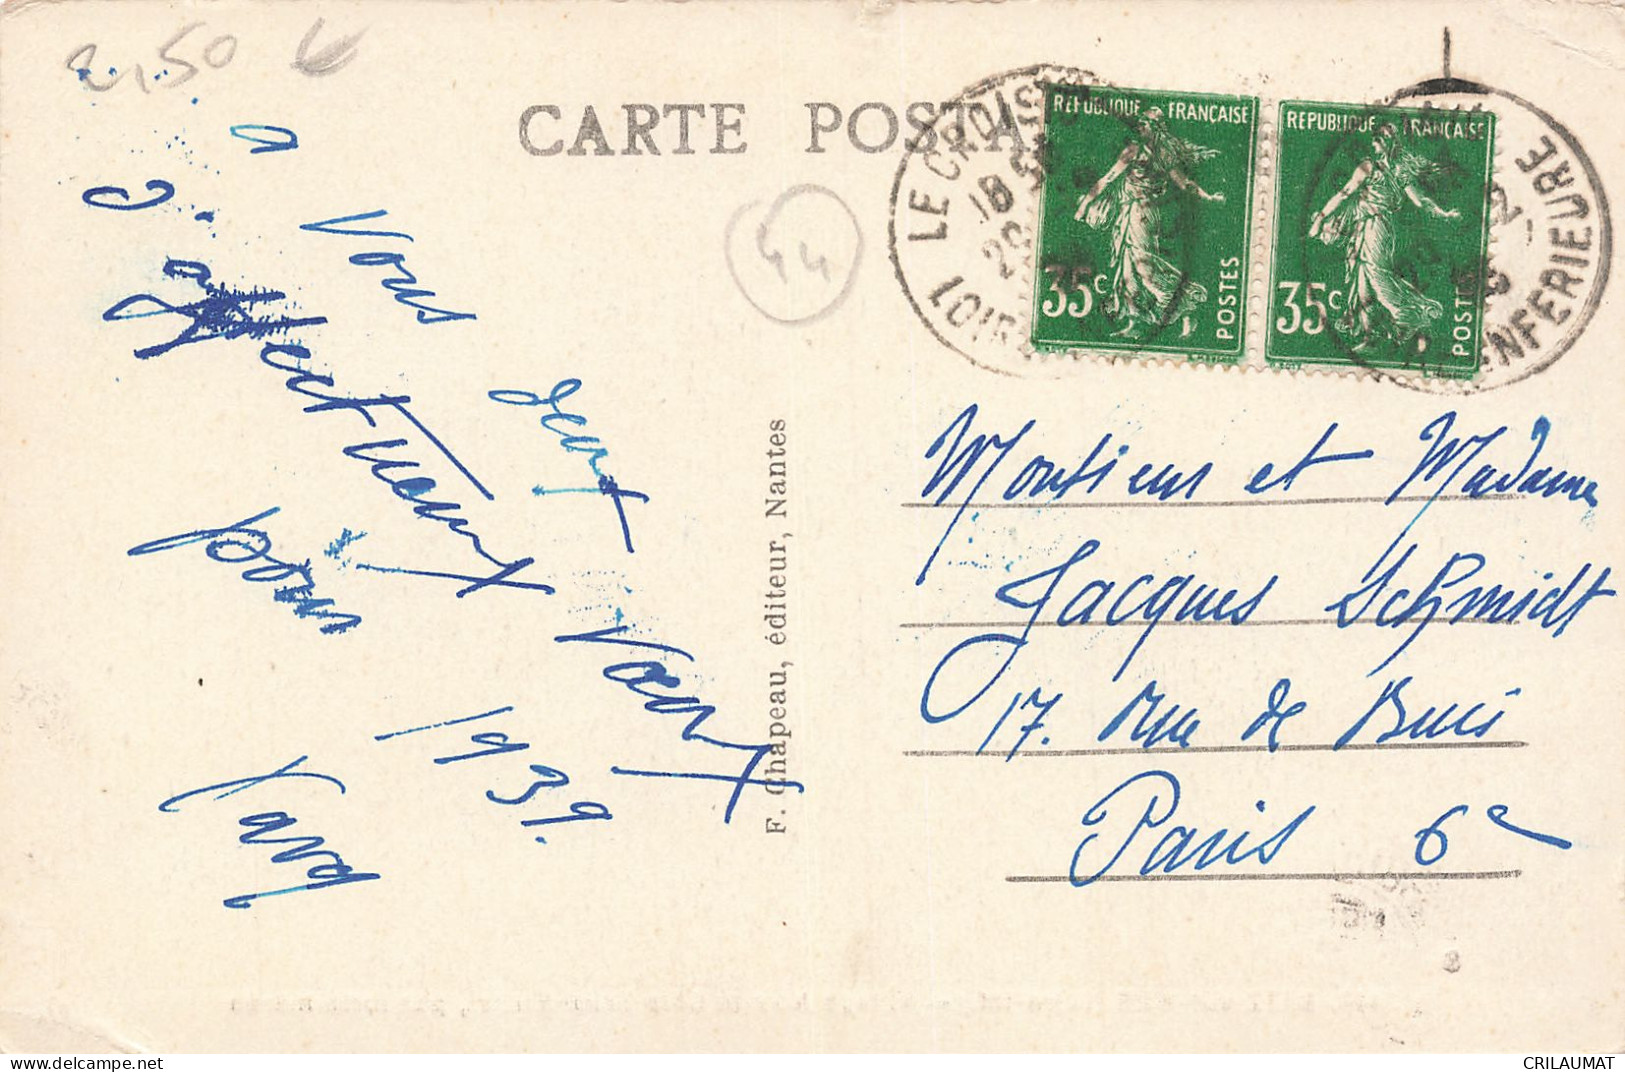 2,50 €
CARTE POSTA
44
LE CROISIC
LOIRE INFERIEURE
REPUBLIQUE FRANÇAISE
35c
POSTES
REPUBLIQUE FRANÇAISE
35c
POSTES
INFERIEURE
a vous deux
d'affectueux vœux
pour 1939.
F. Chapeau, éditeur, Nantes
Monsieur et Madame
Jacques Schmidt
17. rue de Buci
Paris 6e
CRILAUMAT